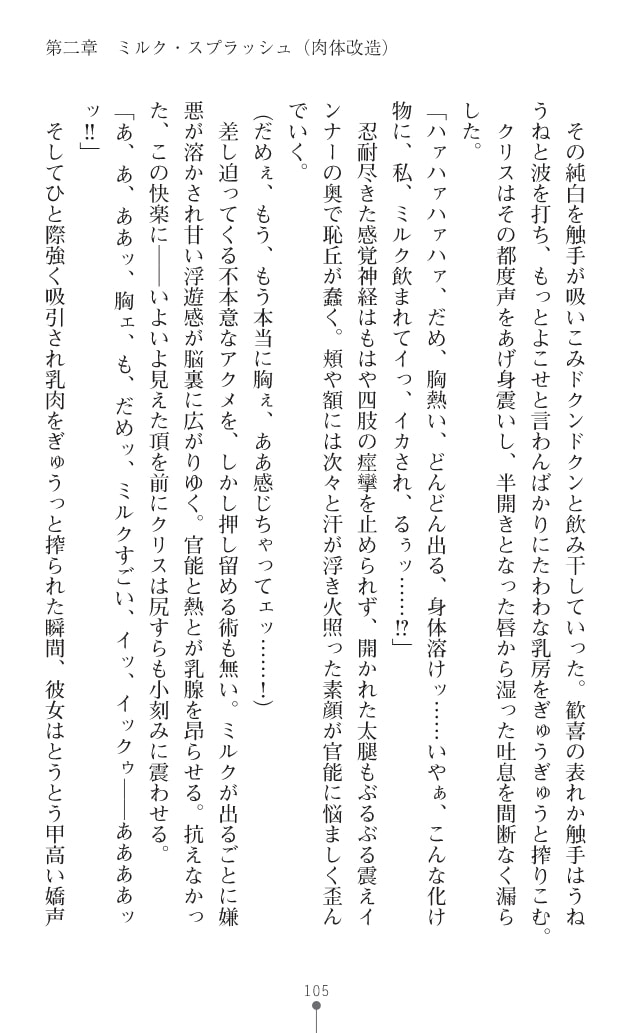 第二章　ミルク・スプラッシュ（肉体改造）
　その純白を触手が吸いこみドクンドクンと飲み干していった。歓喜の表れか触手はうね
うねと波を打ち、もっとよこせと言わんばかりにたわわな乳房をぎゅうぎゅうと搾りこむ。
　クリスはその都度声をあげ身震いし、半開きとなった唇から湿った吐息を間断なく漏ら
した。
「ハァハァハァハァ、だめ、胸熱い、どんどん出る、身体溶けッ……いやぁ、こんな化け
物に、私、ミルク飲まれてイっ、イカされ、るぅッ……!?」
　忍耐尽きた感覚神経はもはや四肢の痙攣を止められず、開かれた太腿もぶるぶる震えイ
ンナーの奥で恥丘が蠢く。頬や額には次々と汗が浮き火照った素顔が官能に悩ましく歪ん
でいく。
（だめぇ、もう、もう本当に胸ぇ、ああ感じちゃってェッ……！）
　差し迫ってくる不本意なアクメを、しかし押し留める術も無い。ミルクが出るごとに嫌
悪が溶かされ甘い浮遊感が脳裏に広がりゆく。官能と熱とが乳腺を昂らせる。抗えなかっ
た、この快楽に――いよいよ見えた頂を前にクリスは尻すらも小刻みに震わせる。
「あ、あ、ああッ、胸ェ、も、だめッ、ミルクすごい、イッ、イックゥ――ああああッ
ッ!!」
　そしてひと際強く吸引され乳肉をぎゅうっと搾られた瞬間、彼女はとうとう甲高い嬌声
105